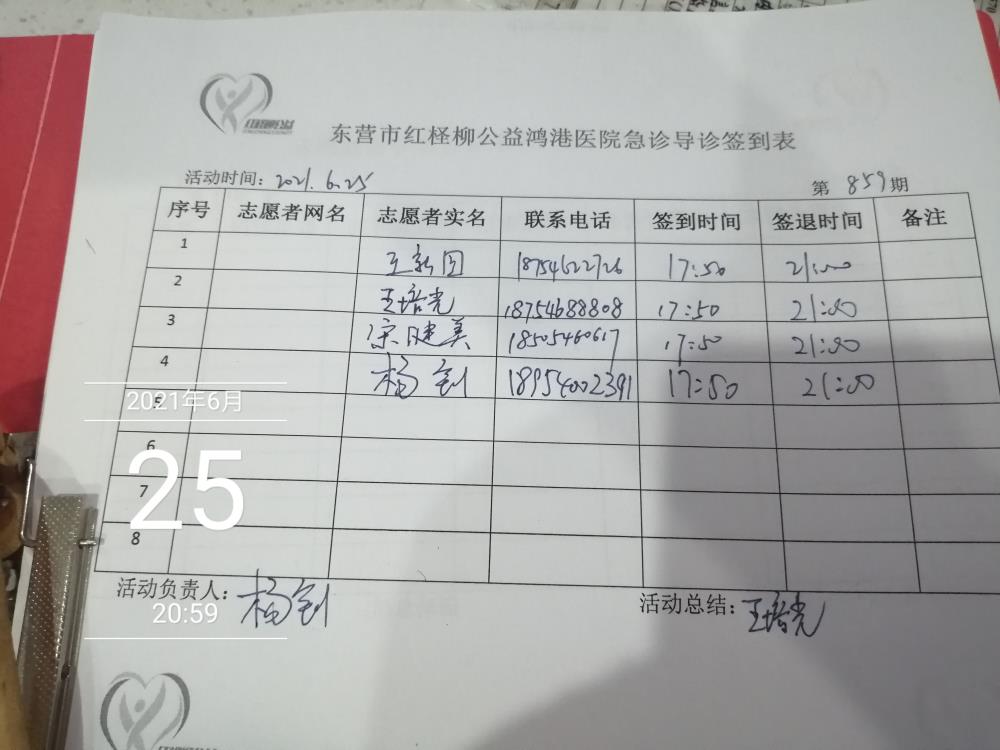 东营市红柽柳公益鸿港医院急诊导诊签到表
活动时间：2021.6.25 第 859 期
序号 志愿者网名 志愿者实名 联系电话 签到时间 签退时间 备注
1 王新国 18754622726 17:50 21:00
2 王培光 18754688808 17:50 21:00
3 宋健美 18505460617 17:50 21:00
4 杨钊 18954002391 17:50 21:00
5
6
7
8
2021年6月
25
20:59
活动负责人：杨钊 活动总结：王培光